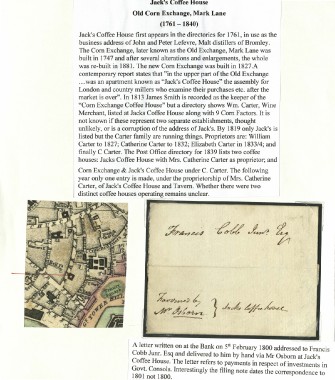 Jack's Coffee House
Old Corn Exchange, Mark Lane
(1761 – 1840)
Jack's Coffee House first appears in the directories for 1761, in use as the
business address of John and Peter Lefevre, Malt distillers of Bromley.
The Corn Exchange, later known as the Old Exchange, Mark Lane was
built in 1747 and after several alterations and enlargements, the whole
was re-built in 1881. The new Corn Exchange was built in 1827.A
contemporary report states that "in the upper part of the Old Exchange
… was an apartment known as "Jack's Coffee House" the assembly for
London and country millers who examine their purchases etc. after the
market is over". In 1813 James Smith is recorded as the keeper of the
"Corn Exchange Coffee House" but a directory shows Wm. Carter, Wine
Merchant, listed at Jacks Coffee House along with 9 Corn Factors. It is
not known if these represent two separate establishments, thought
unlikely, or is a corruption of the address of Jack's. By 1819 only Jack's is
listed but the Carter family are running things. Proprietors are: William
Carter to 1827; Catherine Carter to 1832; Elizabeth Carter in 1833/4; and
finally C Carter. The Post Office directory for 1839 lists two coffee
houses: Jacks Coffee House with Mrs. Catherine Carter as proprietor; and
Corn Exchange & Jacks Coffee House under C. Carter. The following
year only one entry is made, under the proprietorship of Mrs. Catherine
Carter, of Jack's Coffee House and Tavern. Whether there were two
distinct coffee houses operating remains unclear.
Francis Cobb Junr. Esq
Favoured by
Mr Osborn
Jacks Coffeehouse
TOWER HILL
A letter written on at the Bank on 5th February 1800 addressed to Francis
Cobb Junr. Esq and delivered to him by hand via Mr Osborn at Jack's
Coffee House. The letter refers to payments in respect of investments in
Govt. Consols. Interestingly the filing note dates the correspondence to
1801 not 1800.